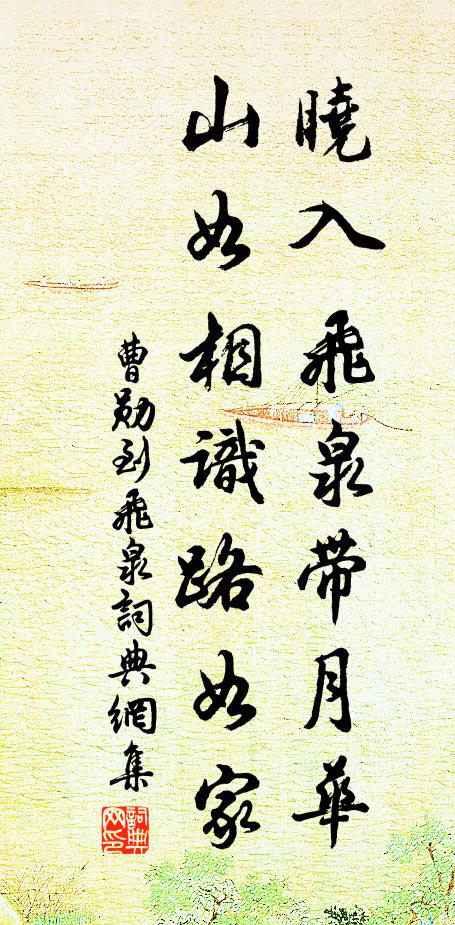 曉入飛泉帶月華
山如相識路如家
曹勛到飛泉詞典網集
詞典網印